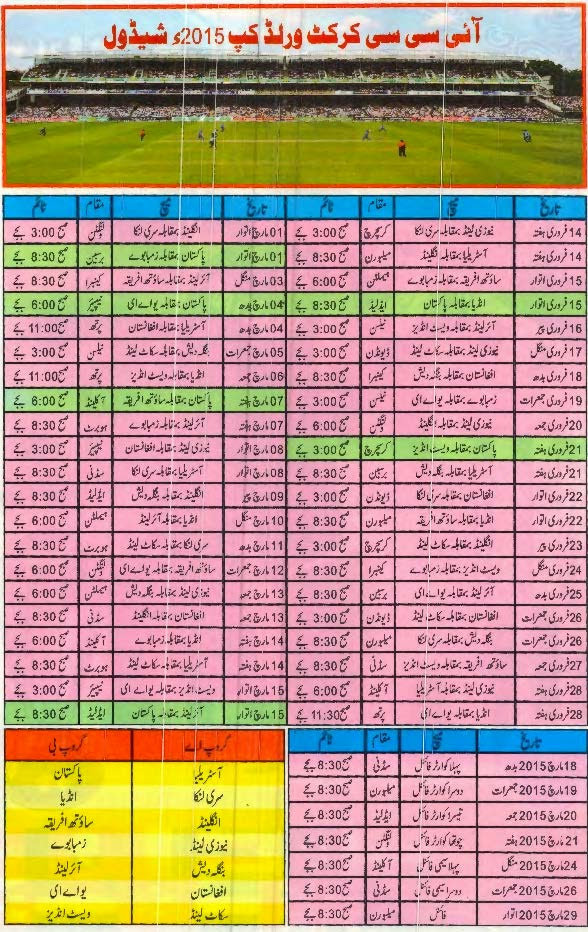 آئی سی سی کرکٹ ورلڈ کپ 2015ء شیڈول
تاریخ میچ مقام ٹائم
14 فروری ہفتہ نیوزی لینڈ بمقابلہ سری لنکا کرچرچ صبح 3:00 بجے
14 فروری ہفتہ آسٹریلیا بمقابلہ انگلینڈ میلبورن صبح 8:30 بجے
15 فروری اتوار ساؤتھ افریقہ بمقابلہ زمبابوے ہیملٹن صبح 6:00 بجے
15 فروری اتوار انڈیا بمقابلہ پاکستان ایڈلیڈ صبح 8:30 بجے
16 فروری پیر آئرلینڈ بمقابلہ ویسٹ انڈیز نیلسن صبح 3:00 بجے
17 فروری منگل نیوزی لینڈ بمقابلہ سکاٹ لینڈ ڈیونڈن صبح 3:00 بجے
18 فروری بدھ افغانستان بمقابلہ بنگلہ دیش کینبرا صبح 8:30 بجے
19 فروری جمعرات زمبابوے بمقابلہ یو اے ای نیلسن صبح 3:00 بجے
20 فروری جمعہ نیوزی لینڈ بمقابلہ انگلینڈ ولنگٹن صبح 6:00 بجے
21 فروری ہفتہ پاکستان بمقابلہ ویسٹ انڈیز کرچرچ صبح 3:00 بجے
21 فروری ہفتہ آسٹریلیا بمقابلہ بنگلہ دیش برسبین صبح 8:30 بجے
22 فروری اتوار افغانستان بمقابلہ سری لنکا ڈیونڈن صبح 3:00 بجے
22 فروری اتوار انڈیا بمقابلہ ساؤتھ افریقہ میلبورن صبح 8:30 بجے
23 فروری پیر انگلینڈ بمقابلہ سکاٹ لینڈ کرچرچ صبح 3:00 بجے
24 فروری منگل ویسٹ انڈیز بمقابلہ زمبابوے کینبرا صبح 8:30 بجے
25 فروری بدھ آئرلینڈ بمقابلہ یو اے ای برسبین صبح 8:30 بجے
26 فروری جمعرات افغانستان بمقابلہ سکاٹ لینڈ ڈیونڈن صبح 3:00 بجے
26 فروری جمعرات بنگلہ دیش بمقابلہ سری لنکا میلبورن صبح 8:30 بجے
27 فروری جمعہ ساؤتھ افریقہ بمقابلہ ویسٹ انڈیز سڈنی صبح 8:30 بجے
28 فروری ہفتہ نیوزی لینڈ بمقابلہ آسٹریلیا آکلینڈ صبح 6:00 بجے
28 فروری ہفتہ انڈیا بمقابلہ یو اے ای پرتھ صبح 11:30 بجے
تاریخ میچ مقام ٹائم
01 مارچ اتوار انگلینڈ بمقابلہ سری لنکا ولنگٹن صبح 3:00 بجے
01 مارچ اتوار پاکستان بمقابلہ زمبابوے برسبین صبح 8:30 بجے
03 مارچ منگل آئرلینڈ بمقابلہ ساؤتھ افریقہ کینبرا صبح 8:30 بجے
04 مارچ بدھ پاکستان بمقابلہ یو اے ای نیپیئر صبح 6:00 بجے
04 مارچ بدھ آسٹریلیا بمقابلہ افغانستان پرتھ صبح 11:00 بجے
05 مارچ جمعرات بنگلہ دیش بمقابلہ سکاٹ لینڈ نیلسن صبح 3:00 بجے
06 مارچ جمعہ انڈیا بمقابلہ ویسٹ انڈیز پرتھ صبح 11:00 بجے
07 مارچ ہفتہ پاکستان بمقابلہ ساؤتھ افریقہ آکلینڈ صبح 6:00 بجے
07 مارچ ہفتہ آئرلینڈ بمقابلہ زمبابوے ہوبرٹ صبح 8:30 بجے
08 مارچ اتوار نیوزی لینڈ بمقابلہ افغانستان نیپیئر صبح 3:00 بجے
08 مارچ اتوار آسٹریلیا بمقابلہ سری لنکا سڈنی صبح 8:30 بجے
09 مارچ پیر انگلینڈ بمقابلہ بنگلہ دیش ایڈلیڈ صبح 8:30 بجے
10 مارچ منگل انڈیا بمقابلہ آئرلینڈ ہیملٹن صبح 6:00 بجے
11 مارچ بدھ سری لنکا بمقابلہ سکاٹ لینڈ ہوبرٹ صبح 8:30 بجے
12 مارچ جمعرات ساؤتھ افریقہ بمقابلہ یو اے ای ولنگٹن صبح 6:00 بجے
13 مارچ جمعہ نیوزی لینڈ بمقابلہ بنگلہ دیش ہیملٹن صبح 6:00 بجے
13 مارچ جمعہ افغانستان بمقابلہ انگلینڈ سڈنی صبح 8:30 بجے
14 مارچ ہفتہ انڈیا بمقابلہ زمبابوے آکلینڈ صبح 6:00 بجے
14 مارچ ہفتہ آسٹریلیا بمقابلہ سکاٹ لینڈ ہوبرٹ صبح 8:30 بجے
15 مارچ اتوار ویسٹ انڈیز بمقابلہ یو اے ای نیپیئر صبح 3:00 بجے
15 مارچ اتوار آئرلینڈ بمقابلہ پاکستان ایڈلیڈ صبح 8:30 بجے
تاریخ میچ مقام ٹائم
18 مارچ 2015 بدھ پہلا کوارٹر فائنل سڈنی صبح 8:30 بجے
19 مارچ 2015 جمعرات دوسرا کوارٹر فائنل میلبورن صبح 8:30 بجے
20 مارچ 2015 جمعہ تیسرا کوارٹر فائنل ایڈلیڈ صبح 8:30 بجے
21 مارچ 2015 ہفتہ چوتھا کوارٹر فائنل ولنگٹن صبح 8:30 بجے
24 مارچ 2015 منگل پہلا سیمی فائنل آکلینڈ صبح 8:30 بجے
26 مارچ 2015 جمعرات دوسرا سیمی فائنل سڈنی صبح 8:30 بجے
29 مارچ 2015 اتوار فائنل میلبورن صبح 8:30 بجے
گروپ اے گروپ بی
آسٹریلیا پاکستان
سری لنکا انڈیا
انگلینڈ ساؤتھ افریقہ
نیوزی لینڈ زمبابوے
بنگلہ دیش آئرلینڈ
افغانستان یو اے ای
سکاٹ لینڈ ویسٹ انڈیز